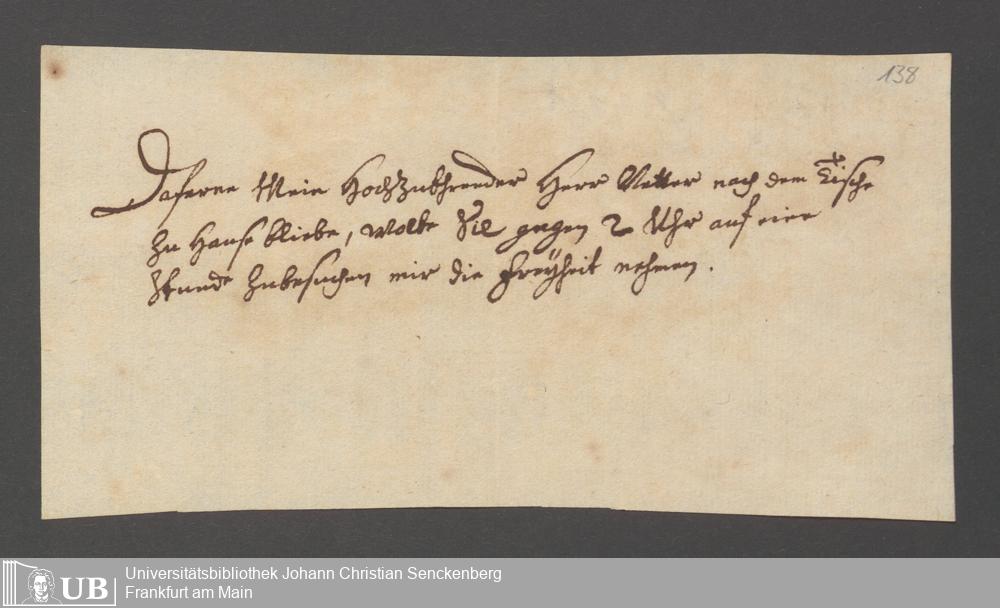 138
Daferne Mein HochZuEhrender Herr Vetter nach dem Tische
zu Hause bliebe, wolte Sie gegen 2 Uhr auf eine
Stunde zubesuchen mir die Freÿheit nehmen.
UB
Universitätsbibliothek Johann Christian Senckenberg
Frankfurt am Main